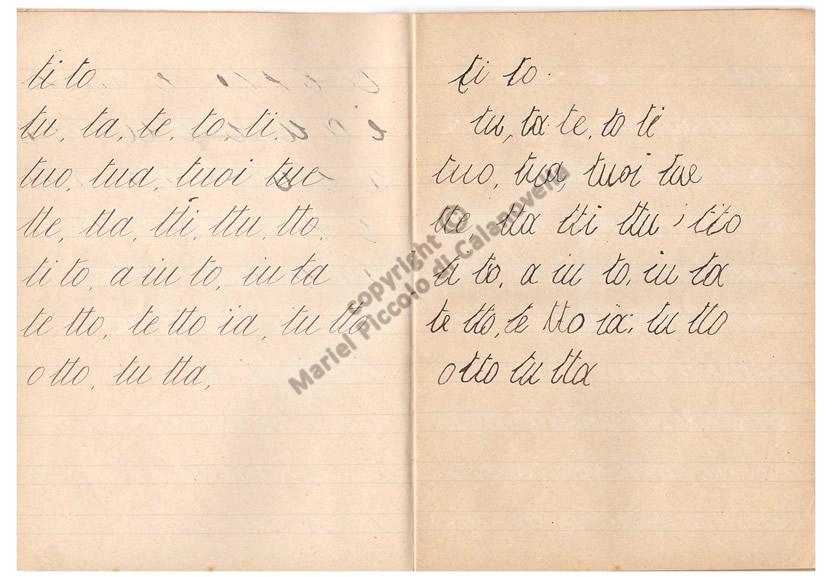 ti to.
tu, ta, te, to, ti,
tuo, tua, tuoi tue
tte, tta, tti, ttu, tto.
ti to, a iu to, iu ta
te tto, te tto ia, tu tto
otto, tu tta,
ti to.
tu, ta te, to ti
tuo, tua, tuoi tue
tte, tta tti ttu, tto
ti to, a iu to, iu ta
te tto, te tto ia, tu tto
otto tu tta
copyright ©
Mariel Piccolo di Calanovella